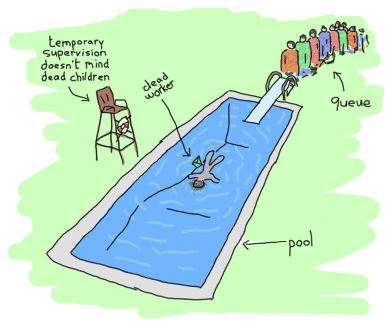 temporary
supervision
doesn't mind
dead children
dead
worker
queue
pool